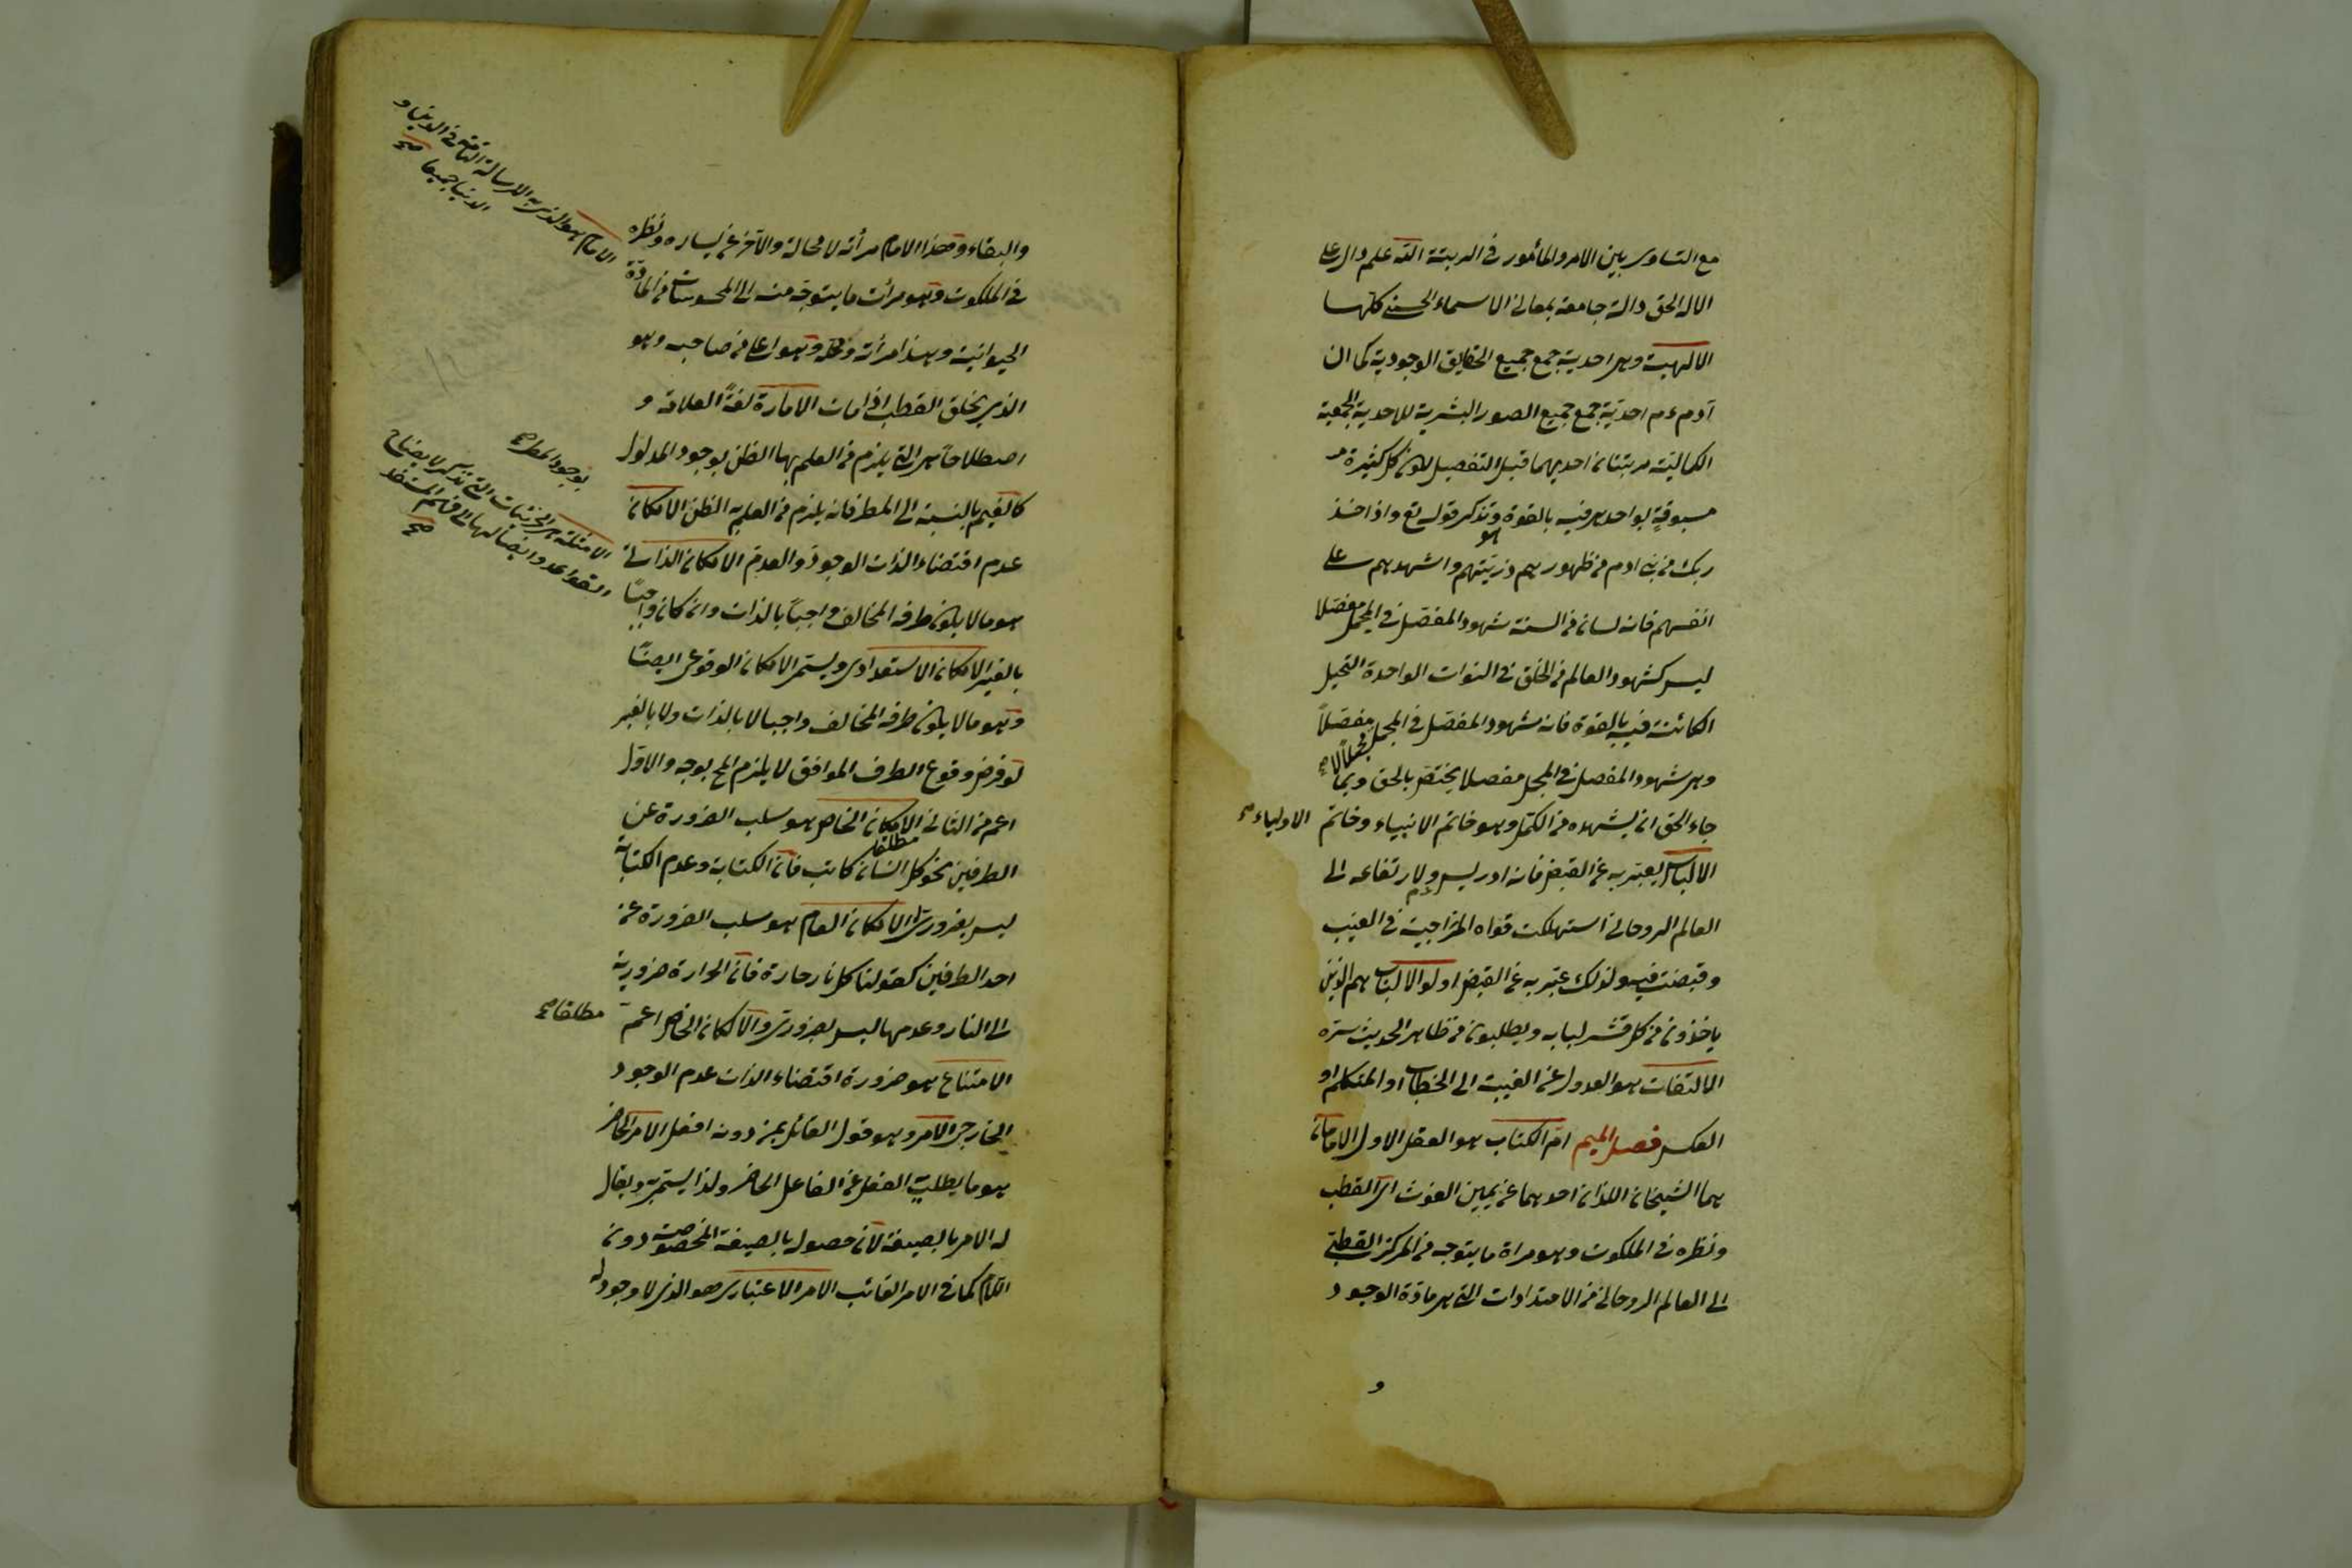 مع التساوى بين الامر والمأمور فى الرتبة الله علم دال على
الاله الحق دالة جامعة بمعانى الاسماء الحسنى كلها
الالهية وهى احدية جمع جميع الحقايق الوجودية كما ان
آدم ءم احدية جمع جميع الصور البشرية للاحدية الجمعية
الكمالية مرتبتان احديهما قبل التفصيل لكون كل كثيرة
مسبوقة بواحد هى فيه بالقوة هو وتذكر قوله تع واذ اخذ
ربك من بنى ادم من ظهورهم ذريتهم واشهدهم على
انفسهم فانه لسان من السنة شهود المفصل فى المجمل مفصلا
ليس كشهود العالم من الخلق فى النواة الواحدة النخيل
الكائنة فيه بالقوة فانه شهود المفصل فى المجمل مجملا لا مفصلاً
وهى شهود المفصل فى المجمل مفصلا يختص بالحق وبمن
جاء الحق ان يشهده من الكمل وهو خاتم الانبياء وخاتم الاولياء صح
الالياس يعبر به عن القبض فانه ادريس ءم ولارتفاعه الى
العالم الروحانى استهلكت قواه المزاجية فى الغيب
وقبضت فيه ولذلك عبر به عن القبض اولو الالباب هم الذين
ياخذون من كل قشر لبابه ويطلبون من ظاهر الحديث سره
الالتفات هو العدول عن الغيبة الى الخطاب او المتكلم او
العكس فصل الميم ام الكتاب هو العقل الاول الامامان
هما الشيخان اللذان احدهما عن يمين الغوث اى القطب
ونظره فى الملكوت وهو مراة ما يتوجه من المركز القطبى
الى العالم الروحانى من الامتدادات التى هى مادة الوجود
و
والبقاء وهذا الامام مرأته لا محالة والآخر عن يساره ونظره
فى الملكوت وهو مرأت ما يتوجه منه الى المحسوسات من المادة
الحيوانية وهذا مرأته ومحله وهو اعلى من صاحبه وهو
الذى يخلف القطب اذا مات الامارة لغةً العلامة و
اصطلاحاً هى التى يلزم من العلم بها الظن بوجود المدلول
كالغيم بالنسبة الى المطر فانه يلزم من العلم به الظن الامكان
عدم اقتضاء الذات الوجود والعدم الامكان الذاتى
هو ما لا يكون طرفه المخالف واجباً بالذات وان كان واجبًا
بالغير الامكان الاستعدادى ويسمى الامكان الوقوعى ايضًا
وهو ما لا يكون طرفه المخالف واجبا لا بالذات ولا بالغير
لو فرض وقوع الطرف الموافق لا يلزم المح بوجه والاول
اعم من الثانى الامكان الخاص هو سلب الضرورة عن
الطرفين نحو كل انسان كاتب مطلقا فان الكتابة وعدم الكتابة
ليس بضرورى له الامكان العام هو سلب الضرورة عن
احد الطرفين كقولنا كل نار حارة فان الحرارة ضرورية
الى النار وعدمها ليس بضرورى والامكان الخاص اعم مطلقا صح
الامتناع هو ضرورة اقتضاء الذات عدم الوجود
الخارجى الامر وهو قول القائل بمن دونه افعل الامر الحاضر
هو ما يطلب به الفعل عن الفاعل الحاضر ولذا يسمى به ويقال
له الامر بالصيغة لان حصوله بالصيغة المخصوصة دون
اللام كما فى الامر الغائب الامر الاعتبارى هو الذى لا وجود له
الامام هو الذى به الرسالة التامة فى الدين و
الدنيا جميعا صح
بوجود المطر صح
الامثلة هى الجزئيات التى تذكر لايضاح
القواعد وايصالها الى فهم المستفيد
صح